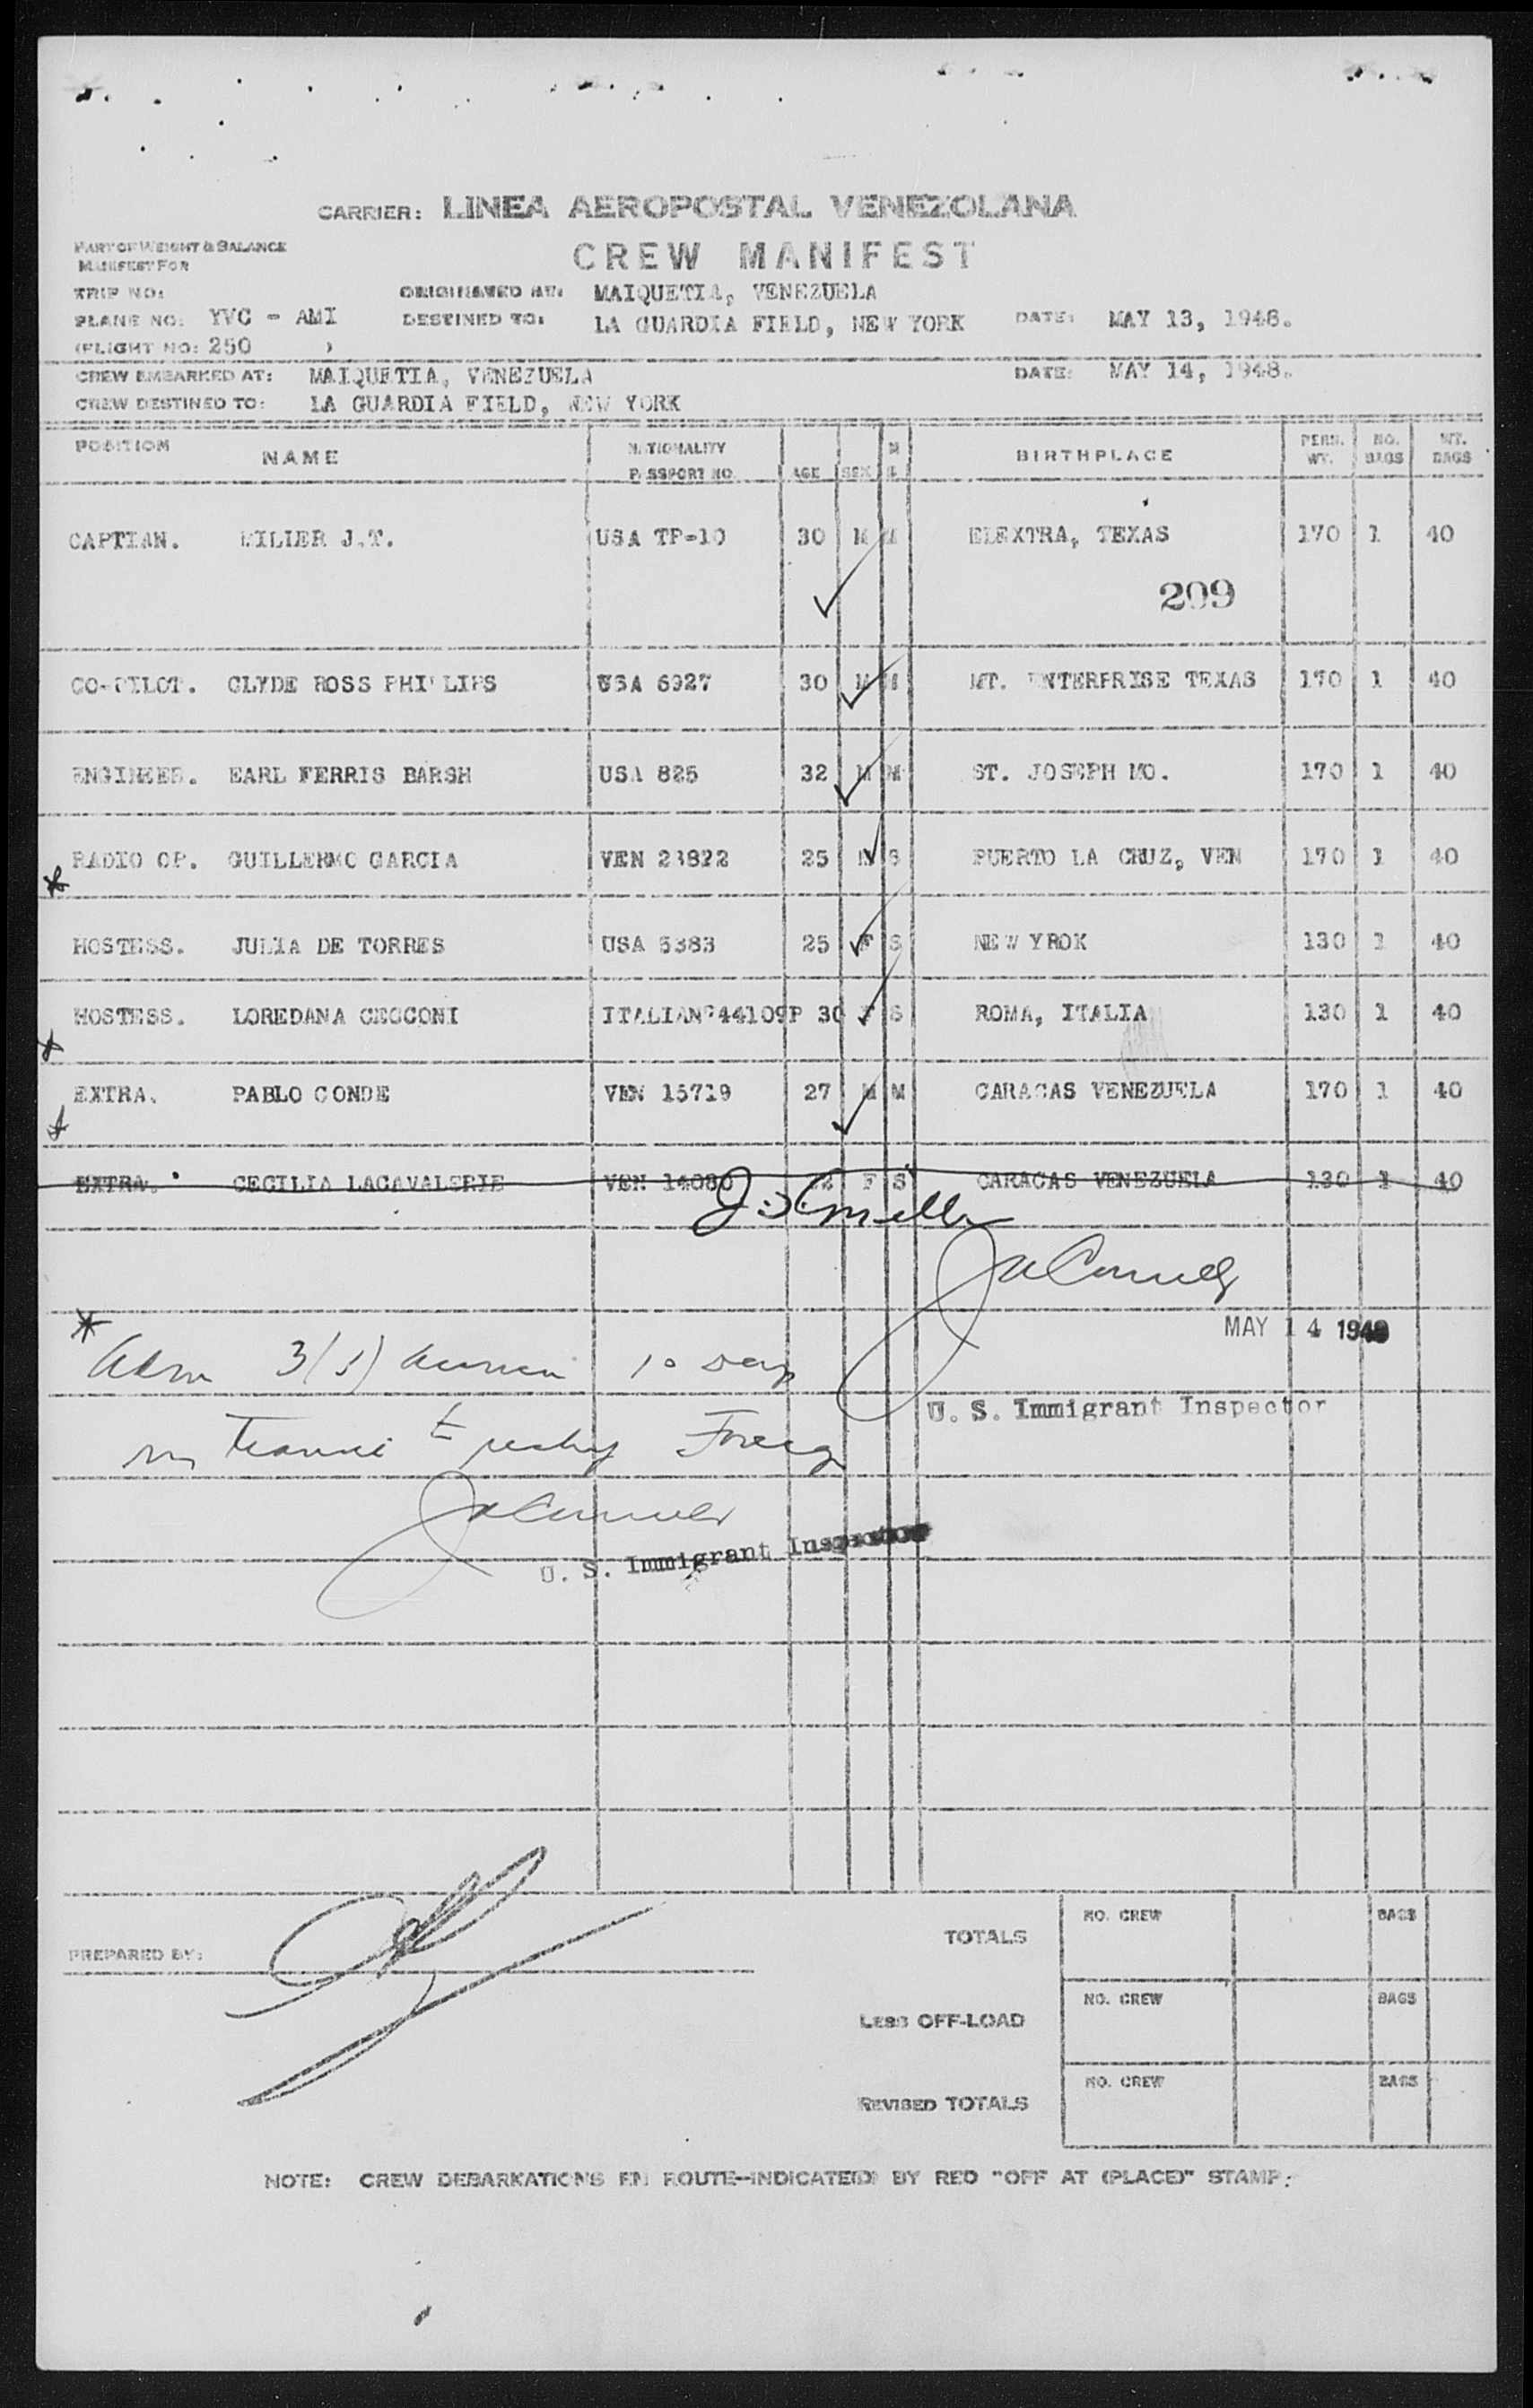 CARRIER: LINEA AEROPOSTAL VENEZOLANA
PART OF WEIGHT & BALANCE
MANIFEST FOR
CREW MANIFEST
TRIP NO: ORIGINATED AT: MAIQUETIA, VENEZUELA
PLANE NO: YVC - AMI DESTINED TO: LA GUARDIA FIELD, NEW YORK DATE: MAY 13, 1948.
(FLIGHT NO: 250 )
CREW EMBARKED AT: MAIQUETIA, VENEZUELA DATE: MAY 14, 1948.
CREW DESTINED TO: LA GUARDIA FIELD, NEW YORK
POSITION NAME NATIONALITY PASSPORT NO. AGE SEX M BIRTHPLACE PERN. WT. NO. BAGS WT. BAGS
CAPTIAN. MILLER J.T. USA TP-10 30 M M ELEXTRA, TEXAS 170 1 40
209
CO-PILOT. CLYDE ROSS PHILLIPS USA 6927 30 M M MT. ENTERPRISE TEXAS 170 1 40
ENGINEER. EARL FERRIS BARSH USA 825 32 M M ST. JOSEPH MO. 170 1 40
* RADIO OP. GUILLERMO GARCIA VEN 23822 25 M S PUERTO LA CRUZ, VEN 170 1 40
HOSTESS. JULIA DE TORRES USA 5383 25 F S NEW YROK 130 1 40
* HOSTESS. LOREDANA CECCONI ITALIAN 44109P 30 F S ROMA, ITALIA 130 1 40
* EXTRA. PABLO CONDE VEN 15719 27 M M CARACAS VENEZUELA 170 1 40
EXTRA. CECILIA LACAVALERIE VEN 14080 F S CARACAS VENEZUELA 130 1 40
J.T. Miller
MAY 14 1948
* Adm 3(5) 10 days
U. S. Immigrant Inspector
in transit to Foreign
U. S. Immigrant Inspector
PREPARED BY:
TOTALS NO. CREW BAGS
LESS OFF-LOAD NO. CREW BAGS
REVISED TOTALS NO. CREW BAGS
NOTE: CREW DEBARKATIONS EN ROUTE-INDICATE(D) BY RED "OFF AT (PLACE)" STAMP.